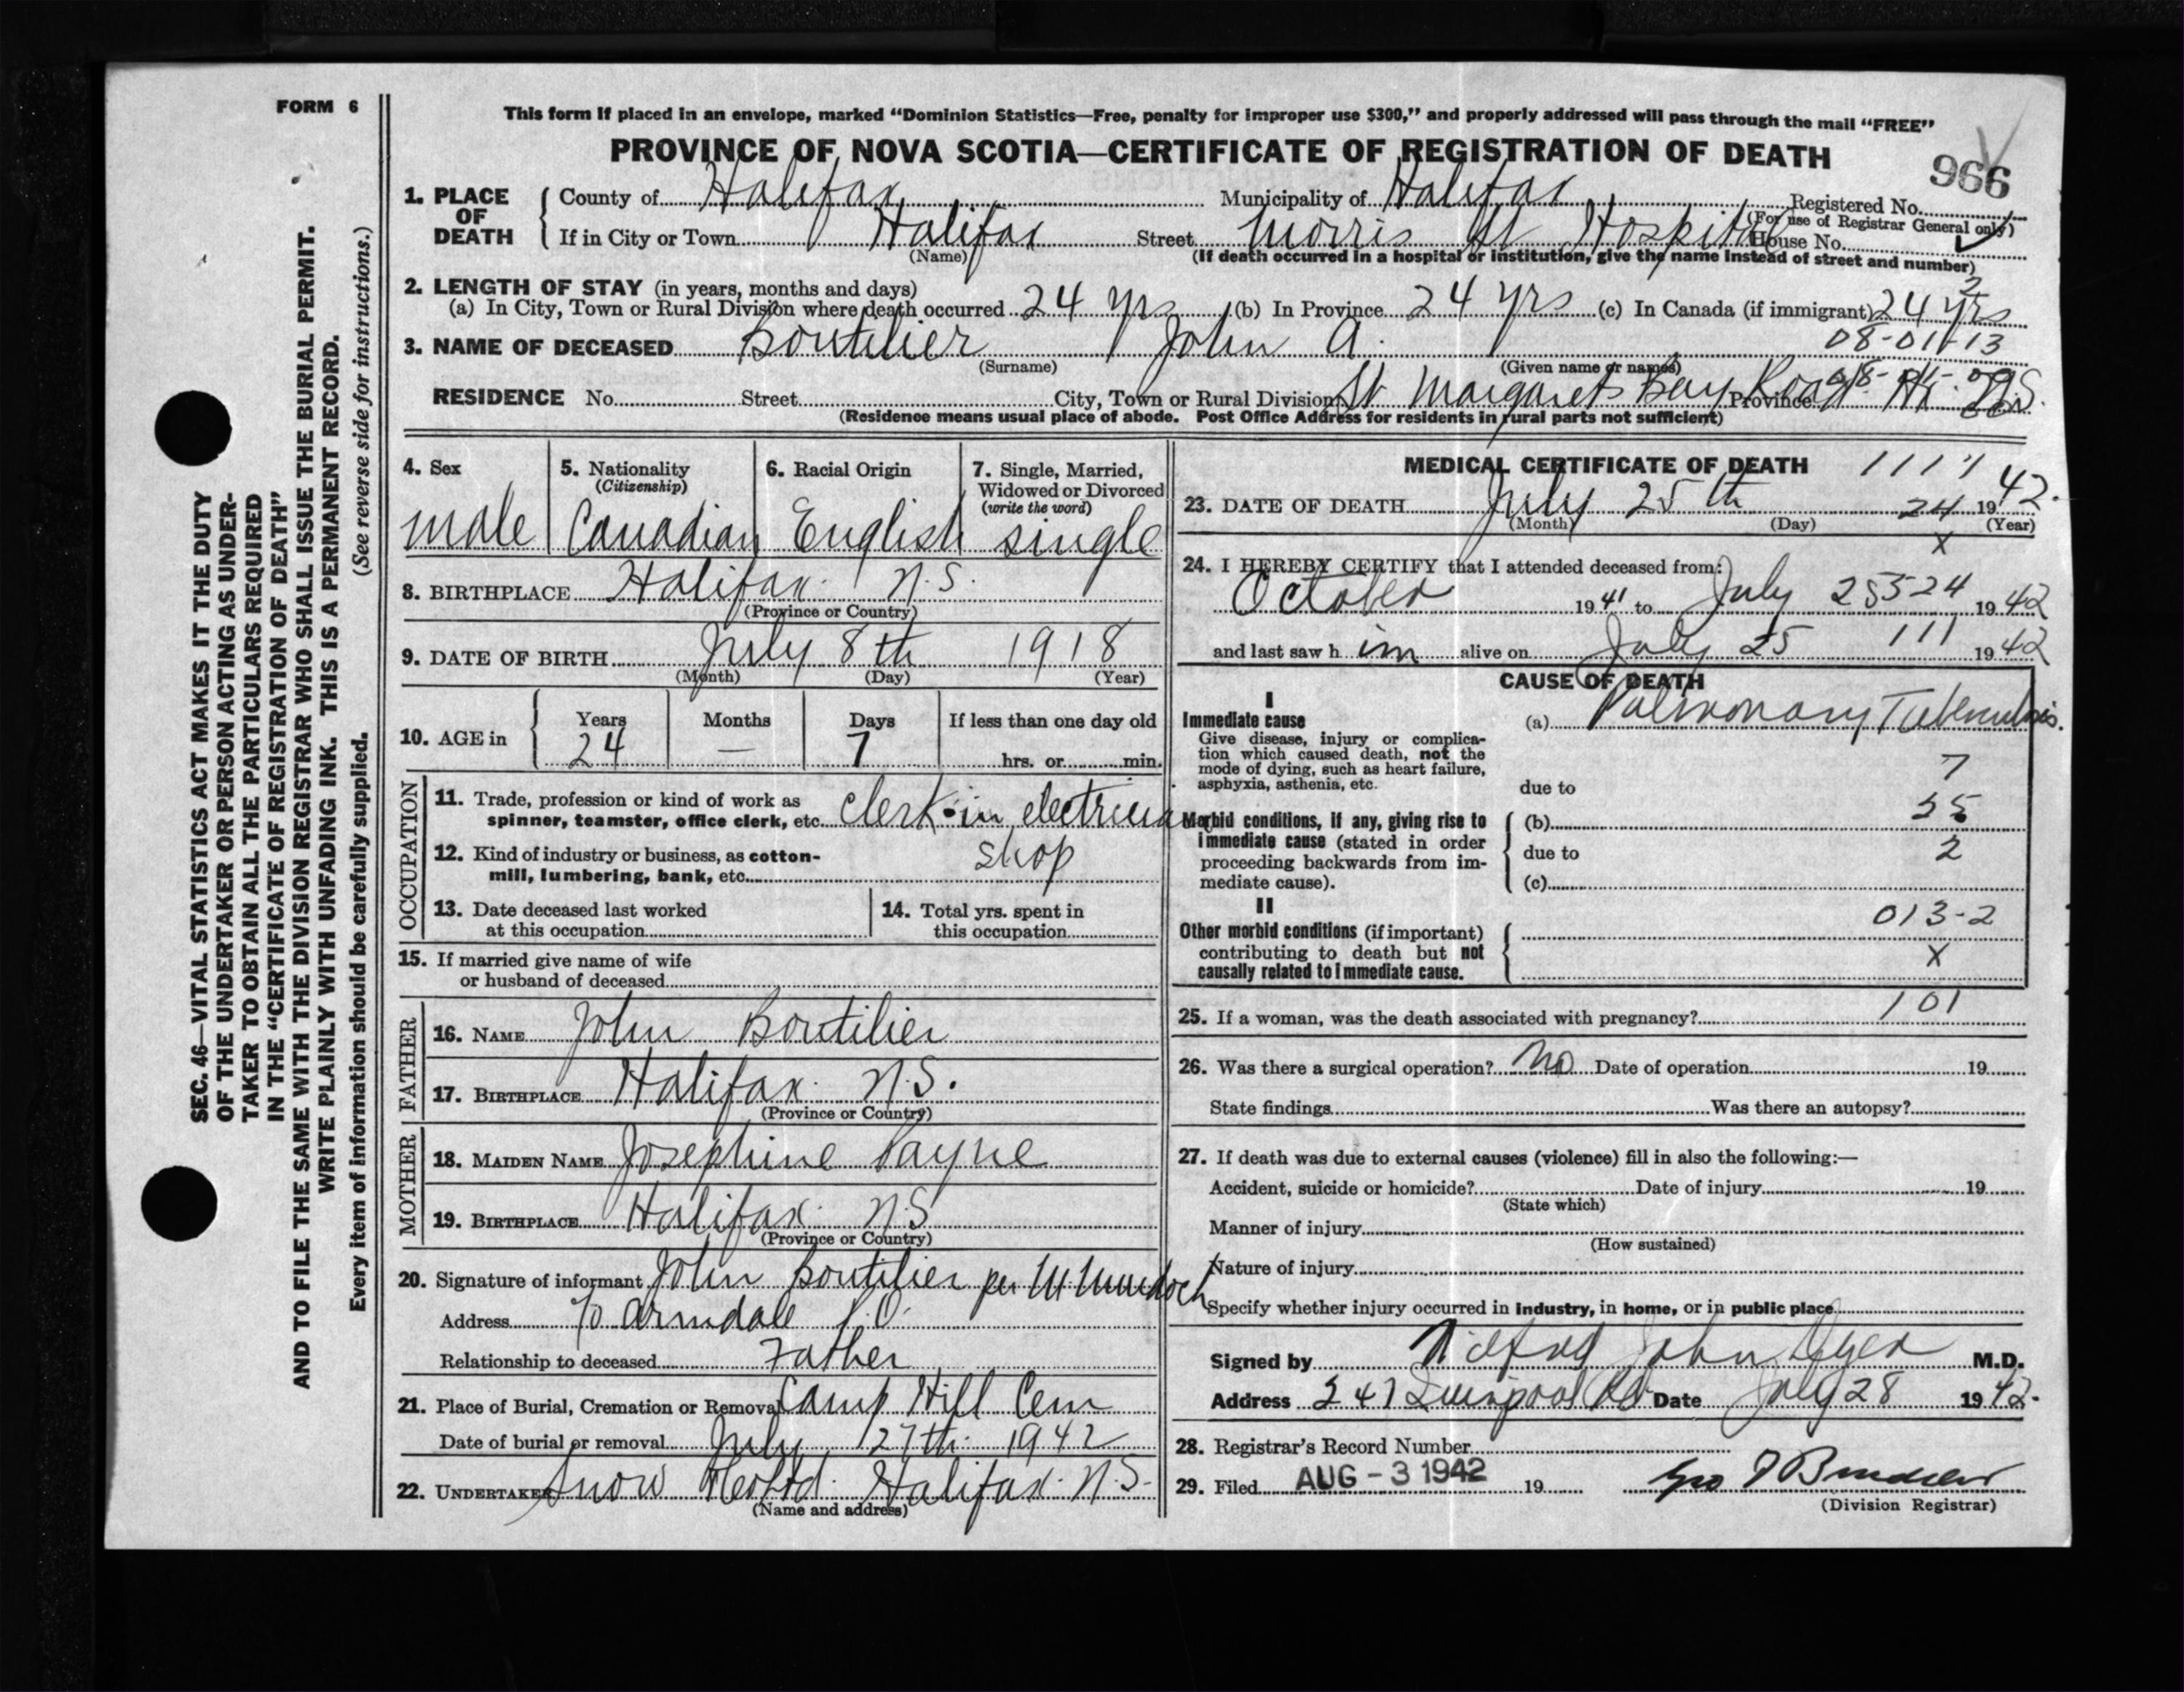 FORM 6
This form if placed in an envelope, marked “Dominion Statistics—Free, penalty for improper use $300,” and properly addressed will pass through the mail “FREE”
PROVINCE OF NOVA SCOTIA—CERTIFICATE OF REGISTRATION OF DEATH
966
SEC. 46—VITAL STATISTICS ACT MAKES IT THE DUTY
OF THE UNDERTAKER OR PERSON ACTING AS UNDER-
TAKER TO OBTAIN ALL THE PARTICULARS REQUIRED
IN THE “CERTIFICATE OF REGISTRATION OF DEATH”
AND TO FILE THE SAME WITH THE DIVISION REGISTRAR WHO SHALL ISSUE THE BURIAL PERMIT.
WRITE PLAINLY WITH UNFADING INK. THIS IS A PERMANENT RECORD.
Every item of information should be carefully supplied. (See reverse side for instructions.)
1. PLACE OF DEATH County of Halifax Municipality of Halifax Registered No.
(For use of Registrar General only)
If in City or Town Halifax Street Morris St Hospital House No.
(Name) (If death occurred in a hospital or institution, give the name instead of street and number)
2. LENGTH OF STAY (in years, months and days) 2
(a) In City, Town or Rural Division where death occurred 24 yrs (b) In Province 24 yrs (c) In Canada (if immigrant) 24 yrs
08-01-13
3. NAME OF DECEASED Boutilier John A.
(Surname) (Given name or names)
RESIDENCE No. Street City, Town or Rural Division St Margarets Bay Road Province N.S.
(Residence means usual place of abode. Post Office Address for residents in rural parts not sufficient)
4. Sex 5. Nationality 6. Racial Origin 7. Single, Married,
(Citizenship) Widowed or Divorced
(write the word)
male Canadian English single
8. BIRTHPLACE Halifax. N.S.
(Province or Country)
9. DATE OF BIRTH July 8th 1918
(Month) (Day) (Year)
10. AGE in Years Months Days If less than one day old
24 — 7 hrs. or min.
OCCUPATION
11. Trade, profession or kind of work as
spinner, teamster, office clerk, etc. Clerk in electrician
12. Kind of industry or business, as cotton-
mill, lumbering, bank, etc. shop
13. Date deceased last worked
at this occupation
14. Total yrs. spent in
this occupation
15. If married give name of wife
or husband of deceased
FATHER
16. NAME John Boutilier
17. BIRTHPLACE Halifax. N.S.
(Province or Country)
MOTHER
18. MAIDEN NAME Josephine Payne
19. BIRTHPLACE Halifax. N.S
(Province or Country)
20. Signature of informant John Boutilier per M Murdoch
Address % Armdale P.O.
Relationship to deceased Father
21. Place of Burial, Cremation or Removal Camp Hill Cem
Date of burial or removal July 27th 1942
22. UNDERTAKER Snow & Co Ltd. Halifax. N.S.
(Name and address)
MEDICAL CERTIFICATE OF DEATH 1111
23. DATE OF DEATH July 25th 24 1942.
(Month) (Day) (Year)
x
24. I HEREBY CERTIFY that I attended deceased from:
October 1941 to July 25 524 1942
and last saw h im alive on July 25 111 1942
CAUSE OF DEATH
I
Immediate cause (a) Pulmonary Tuberculosis.
Give disease, injury or complica-
tion which caused death, not the
mode of dying, such as heart failure,
asphyxia, asthenia, etc.
7
due to
Morbid conditions, if any, giving rise to
immediate cause (stated in order
proceeding backwards from im-
mediate cause).
(b)
due to 2
(c)
II 013-2
Other morbid conditions (if important)
contributing to death but not x
causally related to immediate cause.
101
25. If a woman, was the death associated with pregnancy?
26. Was there a surgical operation? No Date of operation 19
State findings Was there an autopsy?
27. If death was due to external causes (violence) fill in also the following:—
Accident, suicide or homicide? Date of injury 19
(State which)
Manner of injury
(How sustained)
Nature of injury
Specify whether injury occurred in industry, in home, or in public place
Signed by John Dyer M.D.
Address 247 Quinpool Rd Date July 28 1942.
28. Registrar's Record Number
29. Filed AUG - 3 1942 19
(Division Registrar)